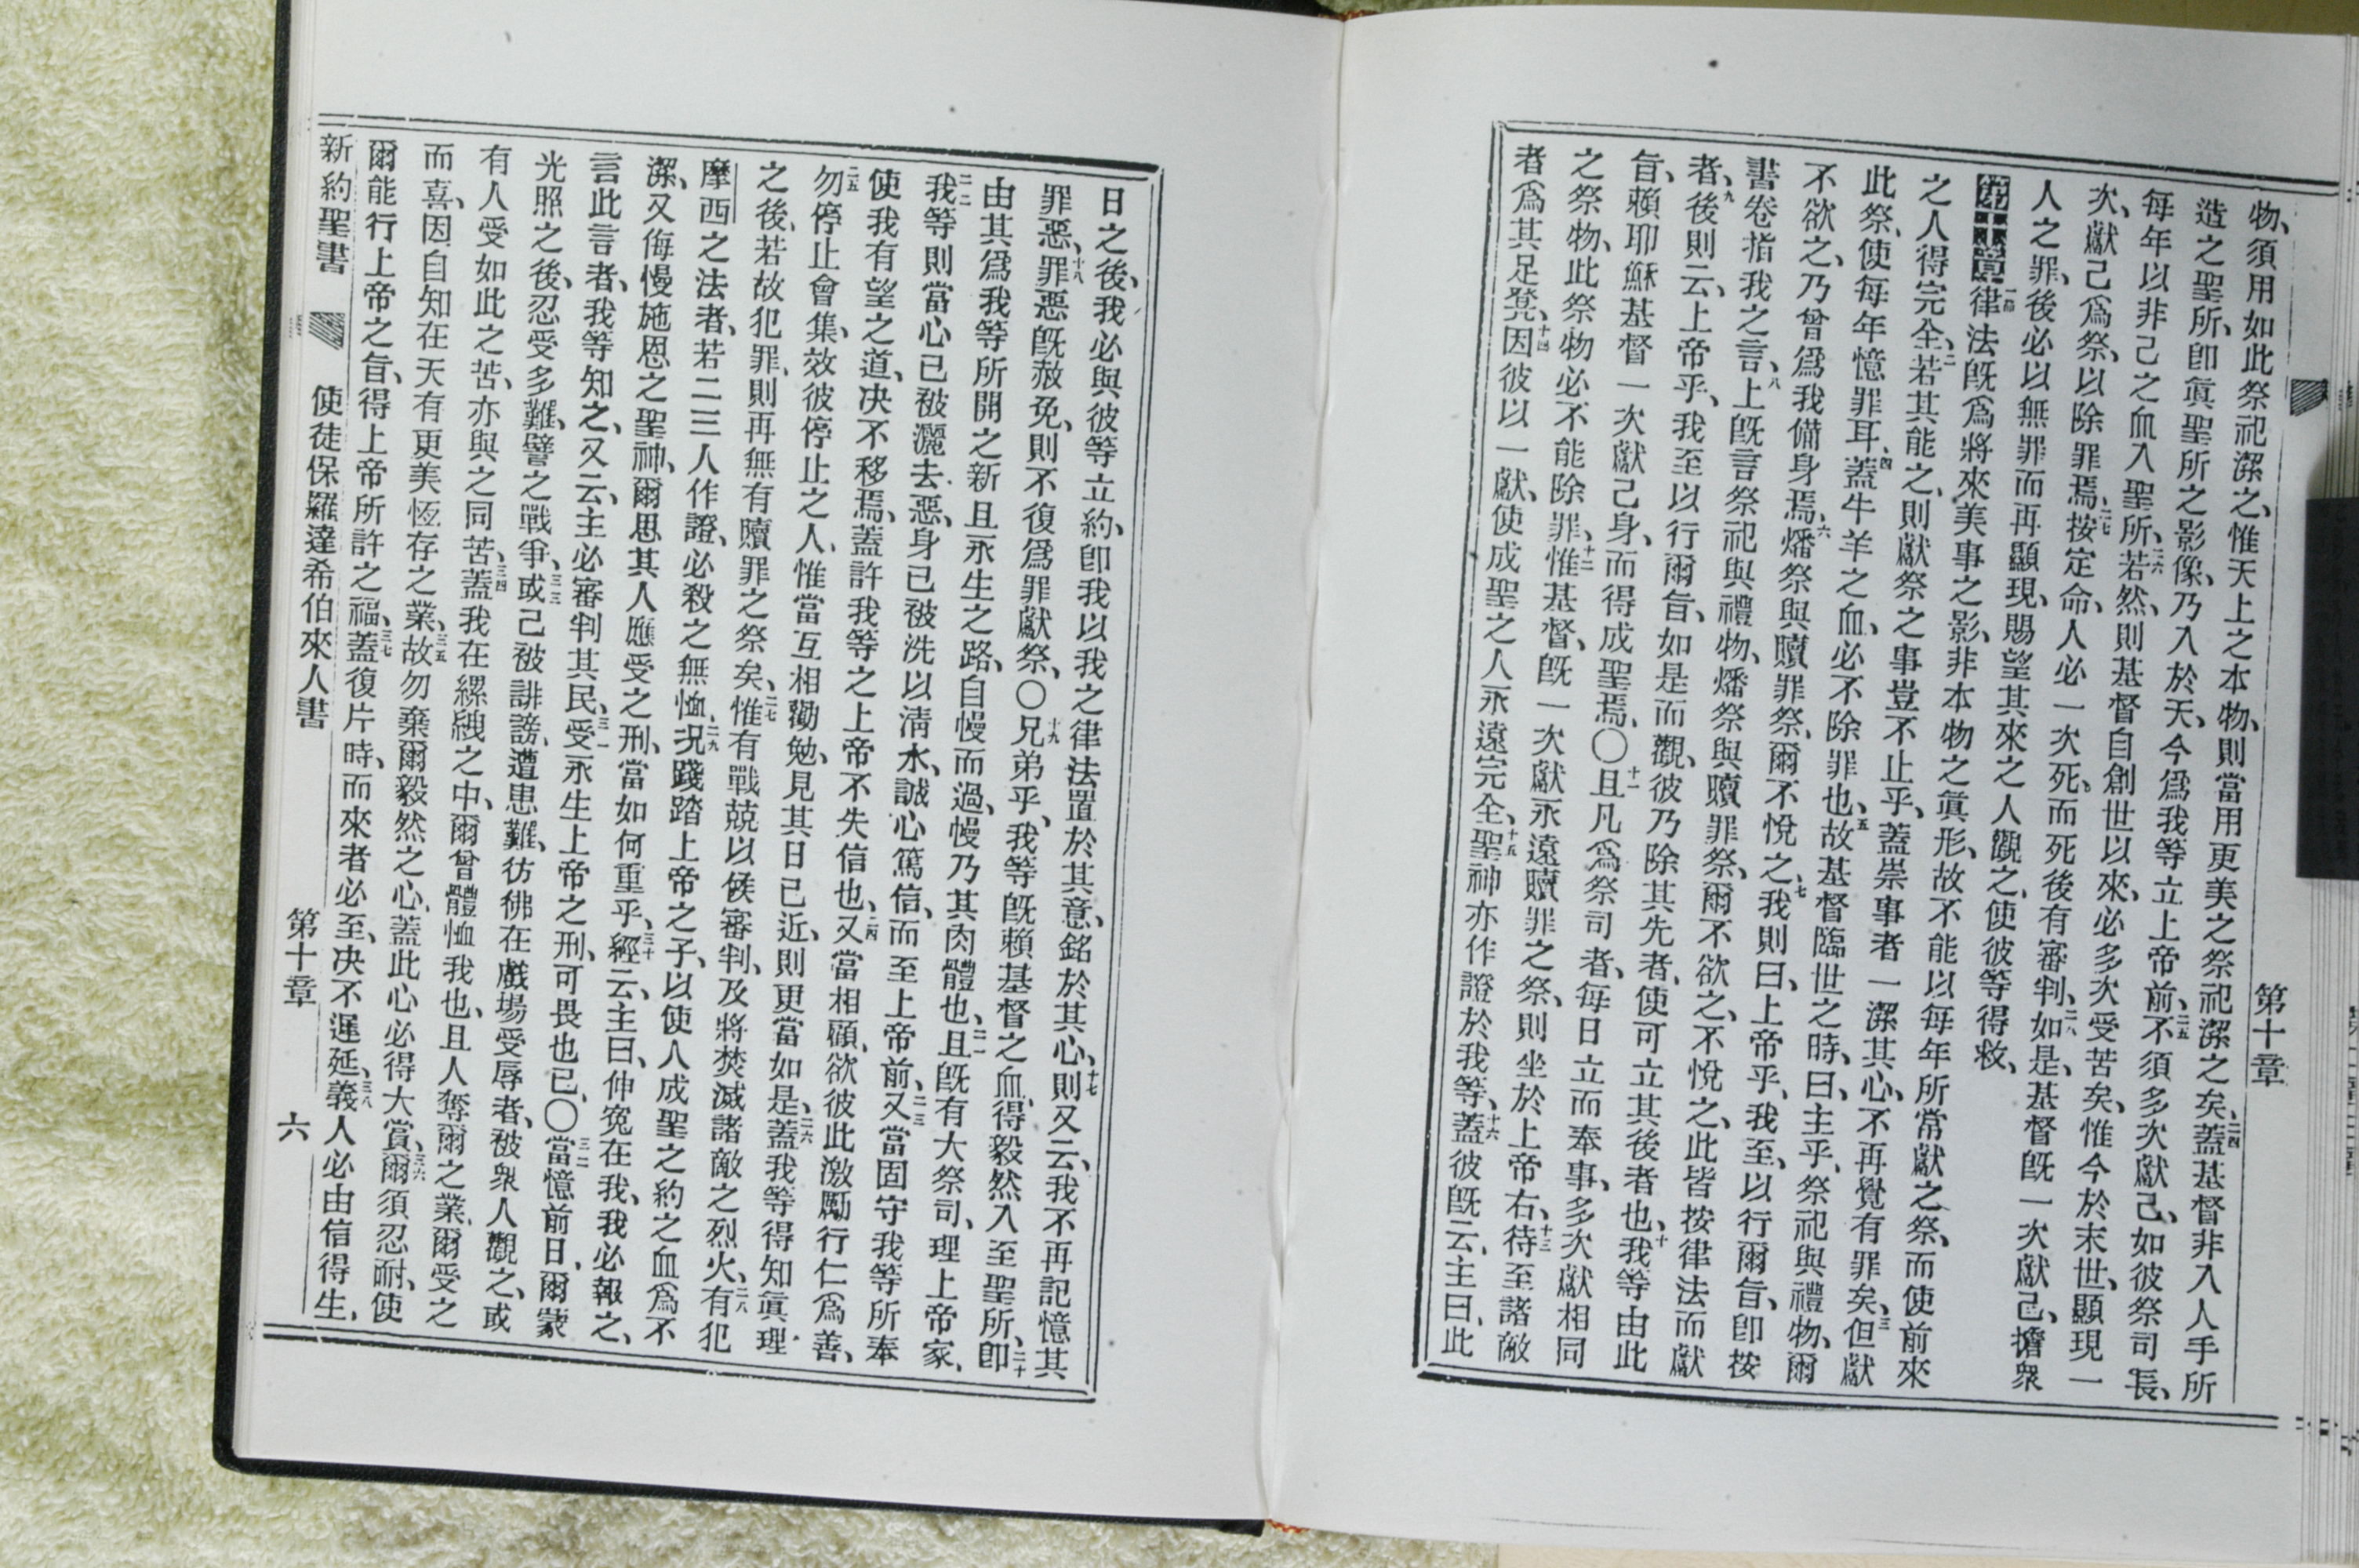 物、須用如此祭祀潔之、惟天上之本物、則當用更美之祭祀潔之矣、二四蓋基督非入人手所
造之聖所、卽眞聖所之影像、乃入於天、今爲我等立上帝前、二五不須多次獻己、如彼祭司長、
每年以非己之血入聖所、二六若然、則基督自創世以來、必多次受苦矣、惟今於末世、顯現一
次、獻己爲祭、以除罪焉、二七按定命、人必一次死、而死後有審判、二八如是、基督旣一次獻己、擔衆
人之罪、後必以無罪而再顯現、賜望其來之人觀之、使彼等得救、
第十章 一節律法旣爲將來美事之影、非本物之眞形、故不能以每年所常獻之祭、而使前來
之人得完全、二若其能之、則獻祭之事豈不止乎、蓋崇事者一潔其心、不再覺有罪矣、三但獻
此祭、使每年憶罪耳、四蓋牛羊之血、必不除罪也、五故基督臨世之時、曰、主乎、祭祀與禮物、爾
不欲之、乃曾爲我備身焉、六燔祭與贖罪祭、爾不悅之、七我則曰、上帝乎、我至、以行爾旨、卽按
書卷指我之言、八上旣言祭祀與禮物、燔祭與贖罪祭、爾不欲之、不悅之、此皆按律法而獻
者、九後則云、上帝乎、我至以行爾旨、如是而觀、彼乃除其先者、使可立其後者也、十我等由此
旨、賴耶穌基督一次獻己身、而得成聖焉、〇十一且凡爲祭司者、每日立而奉事、多次獻相同
之祭物、此祭物必不能除罪、十二惟基督、旣一次獻永遠贖罪之祭、則坐於上帝右、十三待至諸敵
者爲其足凳、十四因彼以一獻、使成聖之人永遠完全、十五聖神亦作證於我等、十六蓋彼旣云、主曰、此
第十章
日之後、我必與彼等立約、卽我以我之律法置於其意、銘於其心、十七則又云、我不再記憶其
罪惡、十八罪惡旣赦免、則不復爲罪獻祭、〇十九兄弟乎、我等旣賴基督之血、得毅然入至聖所、二十卽
由其爲我等所開之新且永生之路、自幔而過、幔乃其肉體也、二一且旣有大祭司、理上帝家、
二二我等則當心已被灑去惡、身已被洗以清水、誠心篤信、而至上帝前、二三又當固守我等所奉
使我有望之道、決不移焉、蓋許我等之上帝不失信也、二四又當相顧、欲彼此激勵行仁爲善、
二五勿停止會集、效彼停止之人、惟當互相勸勉、見其日已近、則更當如是、二六蓋我等得知眞理
之後、若故犯罪、則再無有贖罪之祭矣、二七惟有戰兢以候審判、及將焚滅諸敵之烈火、二八有犯
摩西之法者、若二三人作證、必殺之無恤、二九況踐踏上帝之子、以使人成聖之約之血爲不
潔、又侮慢施恩之聖神、爾思其人應受之刑、當如何重乎、三十經云、主曰、伸寃在我、我必報之、
言此言者、我等知之、又云、主必審判其民、三一受永生上帝之刑、可畏也已、〇三二當憶前日、爾蒙
光照之後、忍受多難、譬之戰爭、三三或己被誹謗、遭患難、彷彿在戲場受辱者、被衆人觀之、或
有人受如此之苦、亦與之同苦、三四蓋我在縲絏之中、爾曾體恤我也、且人奪爾之業、爾受之
而喜、因自知在天有更美恆存之業、三五故勿棄爾毅然之心、蓋此心必得大賞、三六爾須忍耐、使
爾能行上帝之旨、得上帝所許之福、三七蓋復片時、而來者必至、決不遲延、三八義人必由信得生、
新約聖書 使徒保羅達希伯來人書 第十章 六